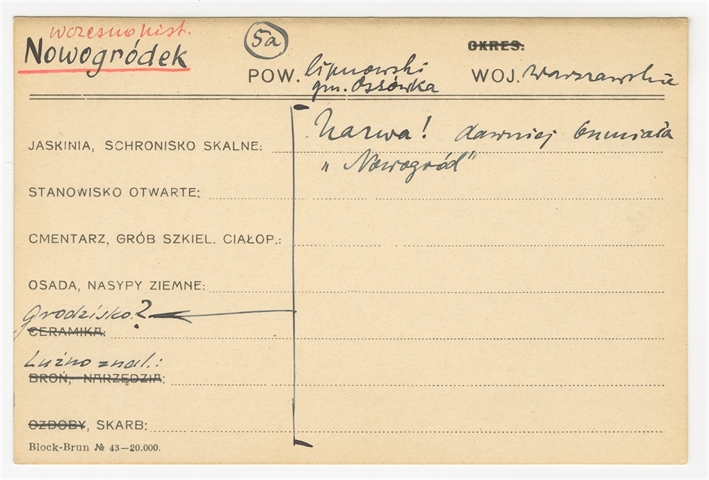 wczesnohist.
Nowogródek
5a
OKRES:
POW. lipnowski
gm. Ossówka
WOJ. warszawskie
JASKINIA, SCHRONISKO SKALNE:
Nazwa! dawniej brzmiała
"Nowogród"
STANOWISKO OTWARTE:
CMENTARZ, GRÓB SZKIEL. CIAŁOP.:
OSADA, NASYPY ZIEMNE:
Grodzisko?
CERAMIKA:
Luźno znal.:
BROŃ, NARZĘDZIA:
OZDOBY, SKARB:
Block-Brun № 43—20.000.